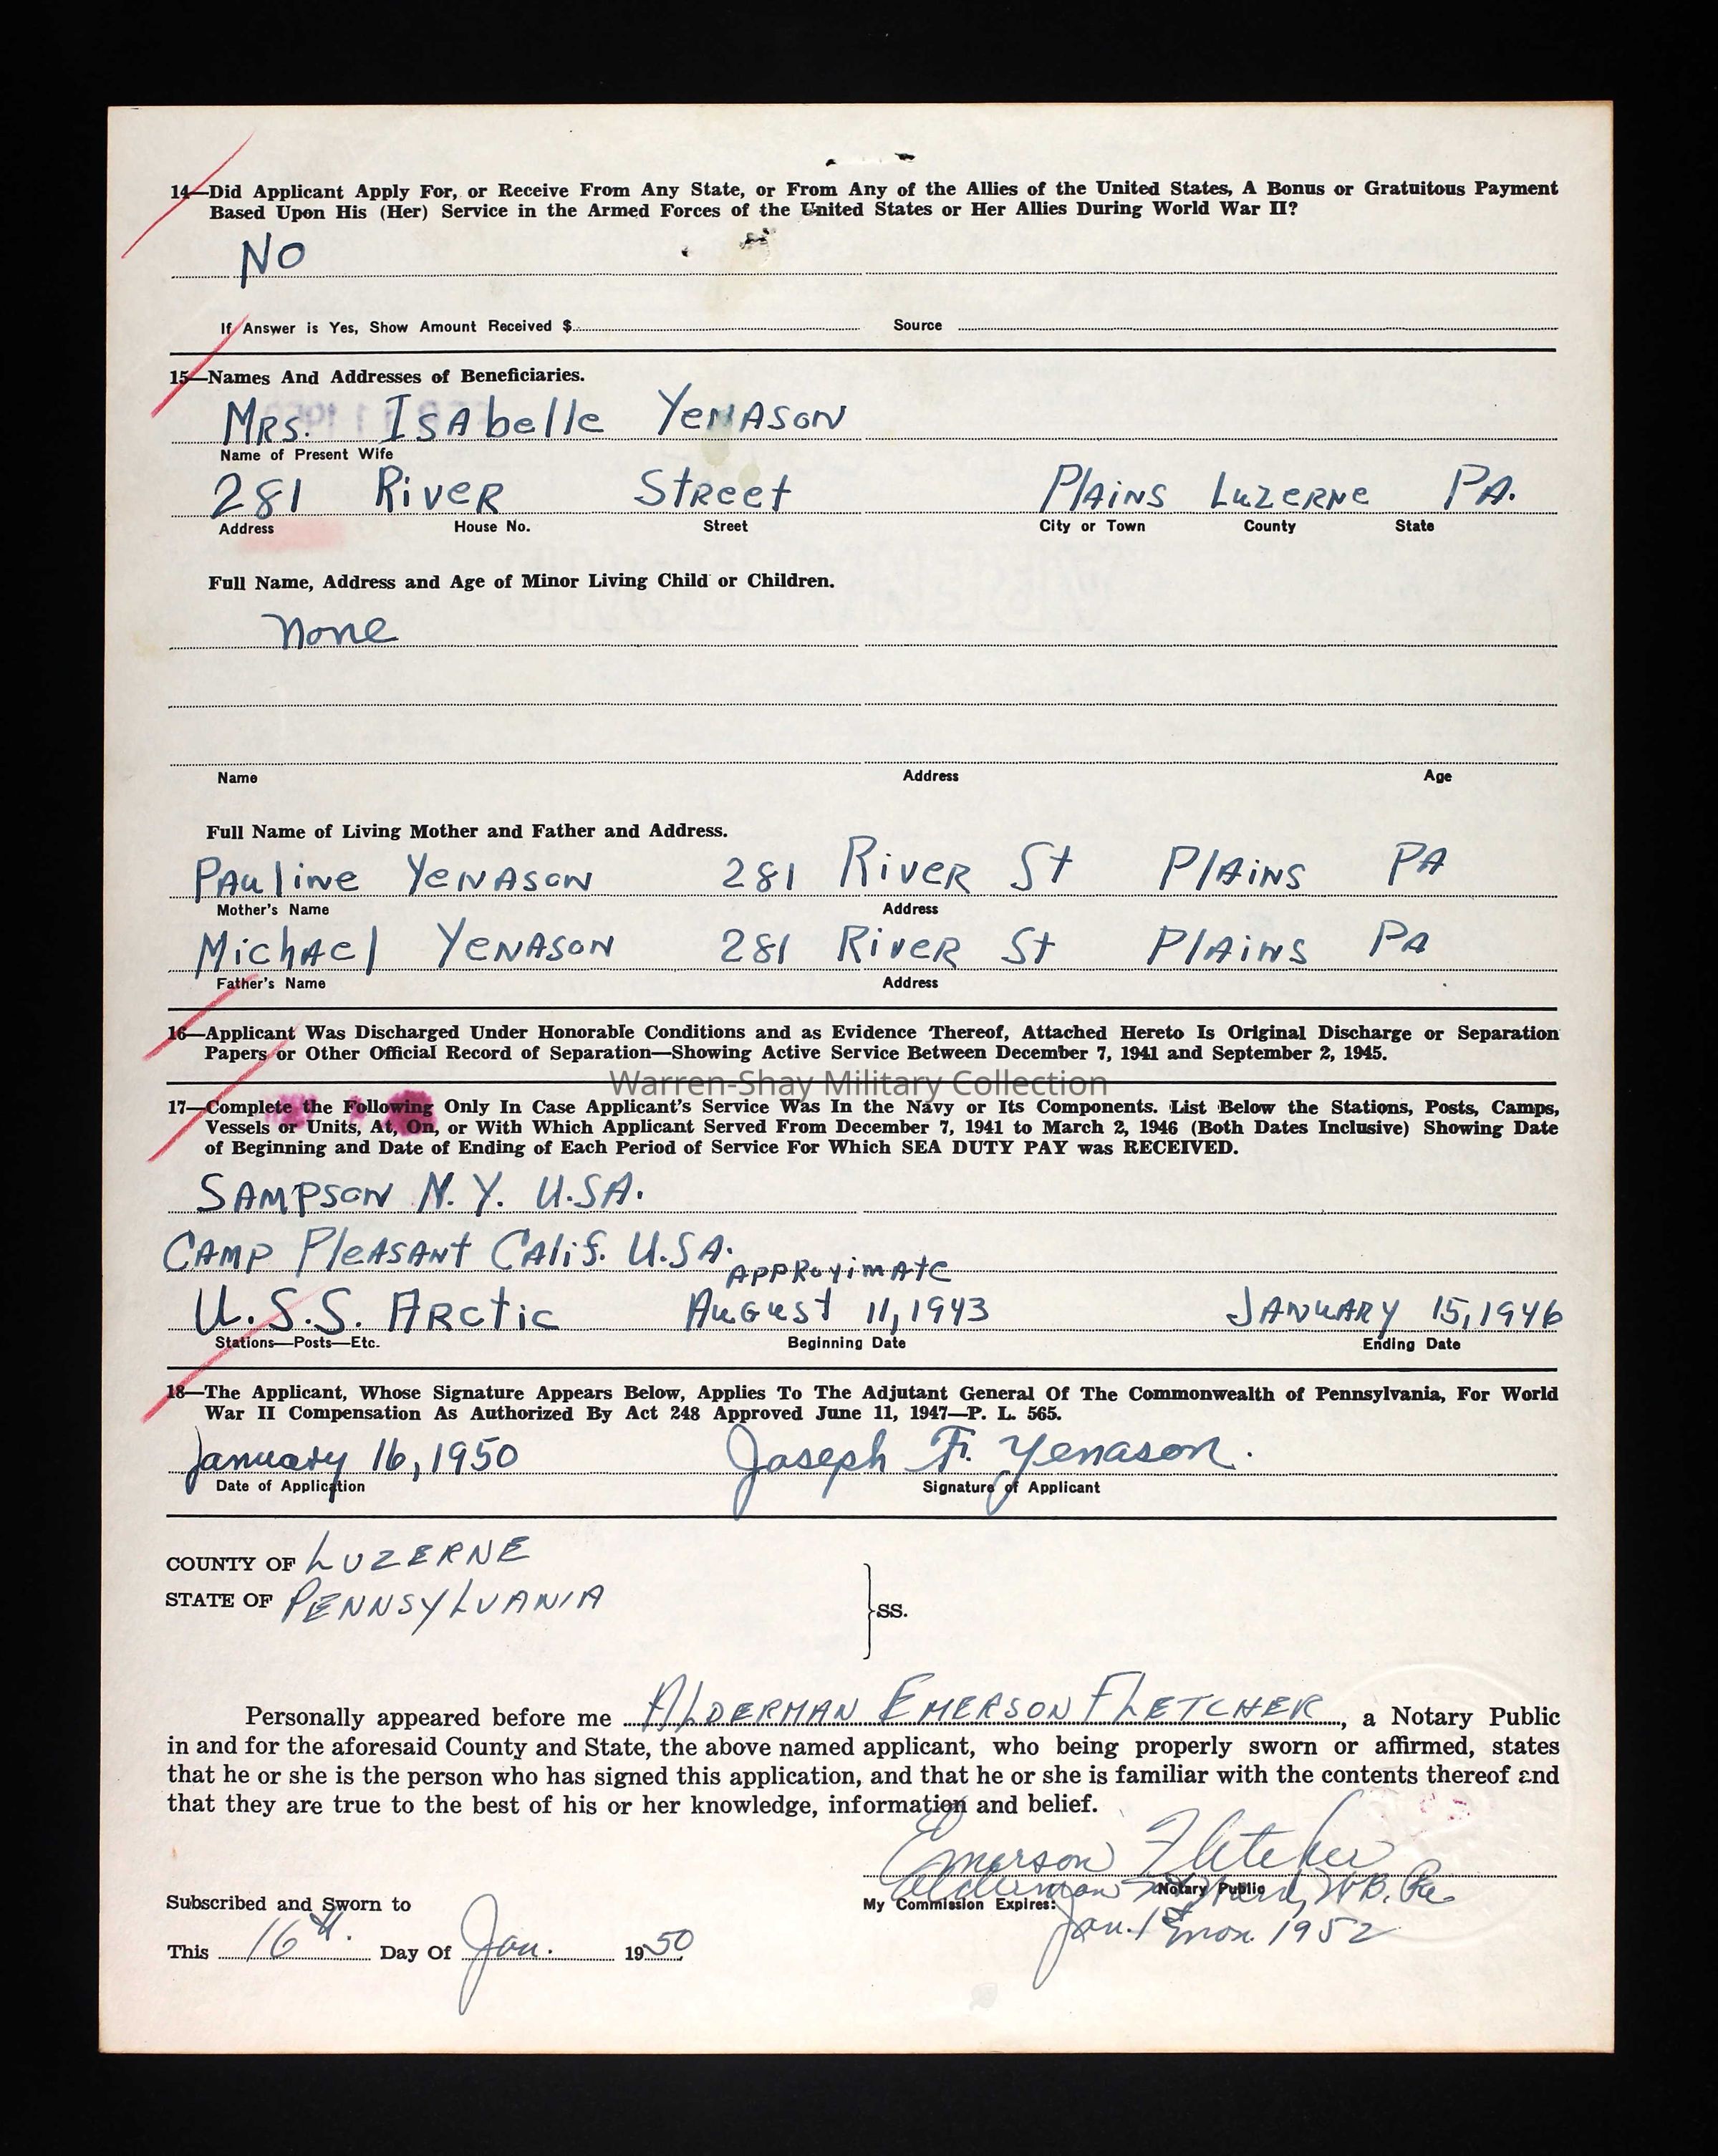 14—Did Applicant Apply For, or Receive From Any State, or From Any of the Allies of the United States, A Bonus or Gratuitous Payment
Based Upon His (Her) Service in the Armed Forces of the United States or Her Allies During World War II?
NO
If Answer is Yes, Show Amount Received $ Source
15—Names And Addresses of Beneficiaries.
MRS. ISAbelle YENASON
Name of Present Wife
281 RiveR StReet PlAiNS LuzeRNe PA.
Address House No. Street City or Town County State
Full Name, Address and Age of Minor Living Child or Children.
none
Name Address Age
Full Name of Living Mother and Father and Address.
PAuliNe YeNASON 281 RiveR St PlAiNS PA
Mother's Name Address
MichAel YeNASON 281 RiveR St PlAiNS PA
Father's Name Address
16—Applicant Was Discharged Under Honorable Conditions and as Evidence Thereof, Attached Hereto Is Original Discharge or Separation
Papers or Other Official Record of Separation—Showing Active Service Between December 7, 1941 and September 2, 1945.
Warren-Shay Military Collection
17—Complete the Following Only In Case Applicant's Service Was In the Navy or Its Components. List Below the Stations, Posts, Camps,
Vessels or Units, At, On, or With Which Applicant Served From December 7, 1941 to March 2, 1946 (Both Dates Inclusive) Showing Date
of Beginning and Date of Ending of Each Period of Service For Which SEA DUTY PAY was RECEIVED.
SAMPSON N.Y. U.S.A.
CAMP PleASANt CAlif. U.S.A.
APPRoximAte
U.S.S. ARctic AuGust 11, 1943 JANUARY 15, 1946
Stations—Posts—Etc. Beginning Date Ending Date
18—The Applicant, Whose Signature Appears Below, Applies To The Adjutant General Of The Commonwealth of Pennsylvania, For World
War II Compensation As Authorized By Act 248 Approved June 11, 1947—P. L. 565.
January 16, 1950 Joseph F. Yenason.
Date of Application Signature of Applicant
COUNTY OF LUZERNE
STATE OF PENNSYLVANIA
SS.
Personally appeared before me ALDERMAN EMERSON FLETCHER, a Notary Public
in and for the aforesaid County and State, the above named applicant, who being properly sworn or affirmed, states
that he or she is the person who has signed this application, and that he or she is familiar with the contents thereof and
that they are true to the best of his or her knowledge, information and belief.
Emerson Fletcher
Alderman W.B. Pa.
Notary Public
Subscribed and Sworn to My Commission Expires:
Jan. 1st mon. 1952
This 16th. Day Of Jan. 1950